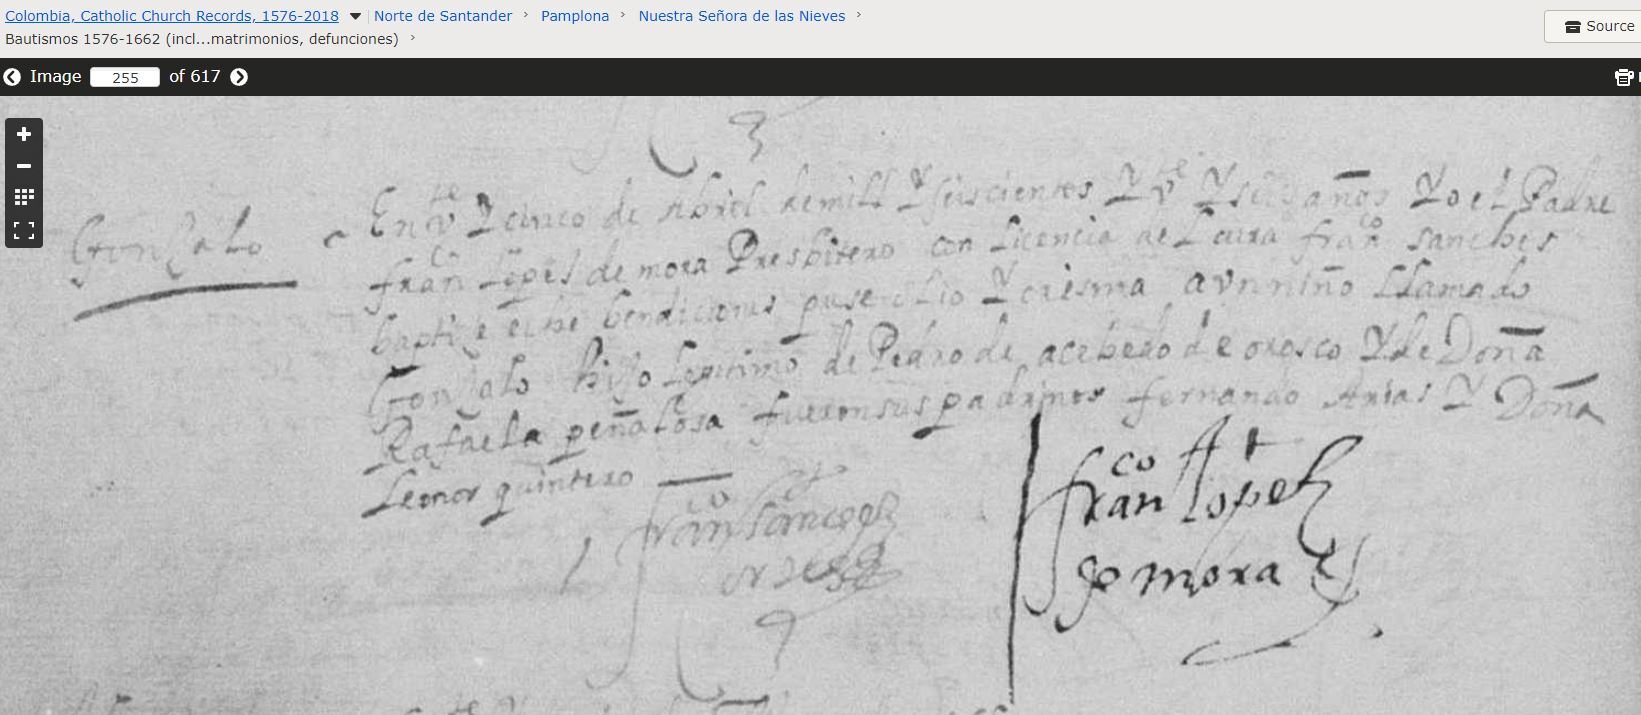 Colombia, Catholic Church Records, 1576-2018 Norte de Santander › Pamplona › Nuestra Señora de las Nieves ›
Bautismos 1576-1662 (incl...matrimonios, defunciones) ›
Source
Image 255 of 617
Gonzalo
En vte Y cinco de Abril de mill Y seiscientos Y vte Y seis años Yo el Padre
franco Lopes de mora Presbitero con Licencia del cura franco sanches
baptize e hise bendiciones puse olio Y crisma a vn niño LLamado
Gonzalo hijo Legitimo de Pedro de acebedo de orosco Y de Doña
Rafaela peñalosa fueron sus padrinos fernando Arias Y Doña
Leonor quintero
franco sanches
franco Lopez
de mora